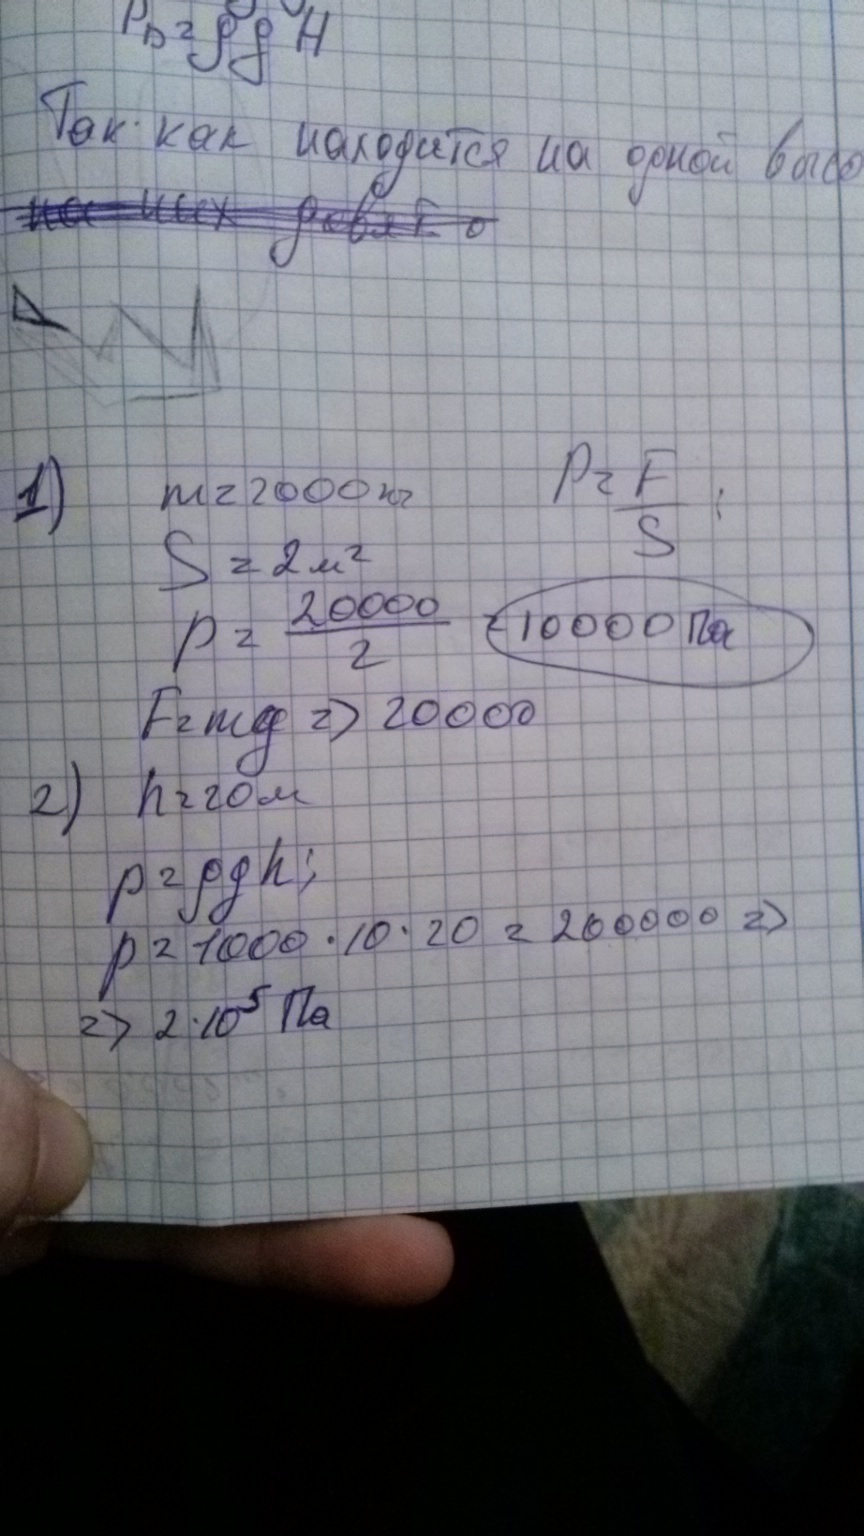 Pb = ρgH
Так как находится на одной высо
1) m = 2000 кг P = F/S;
S = 2 м²
p = 20000/2 = 10000 Па
F = mg => 20000
2) h = 20 м
p = ρgh;
p = 1000 · 10 · 20 = 200000 =>
=> 2·10⁵ Па